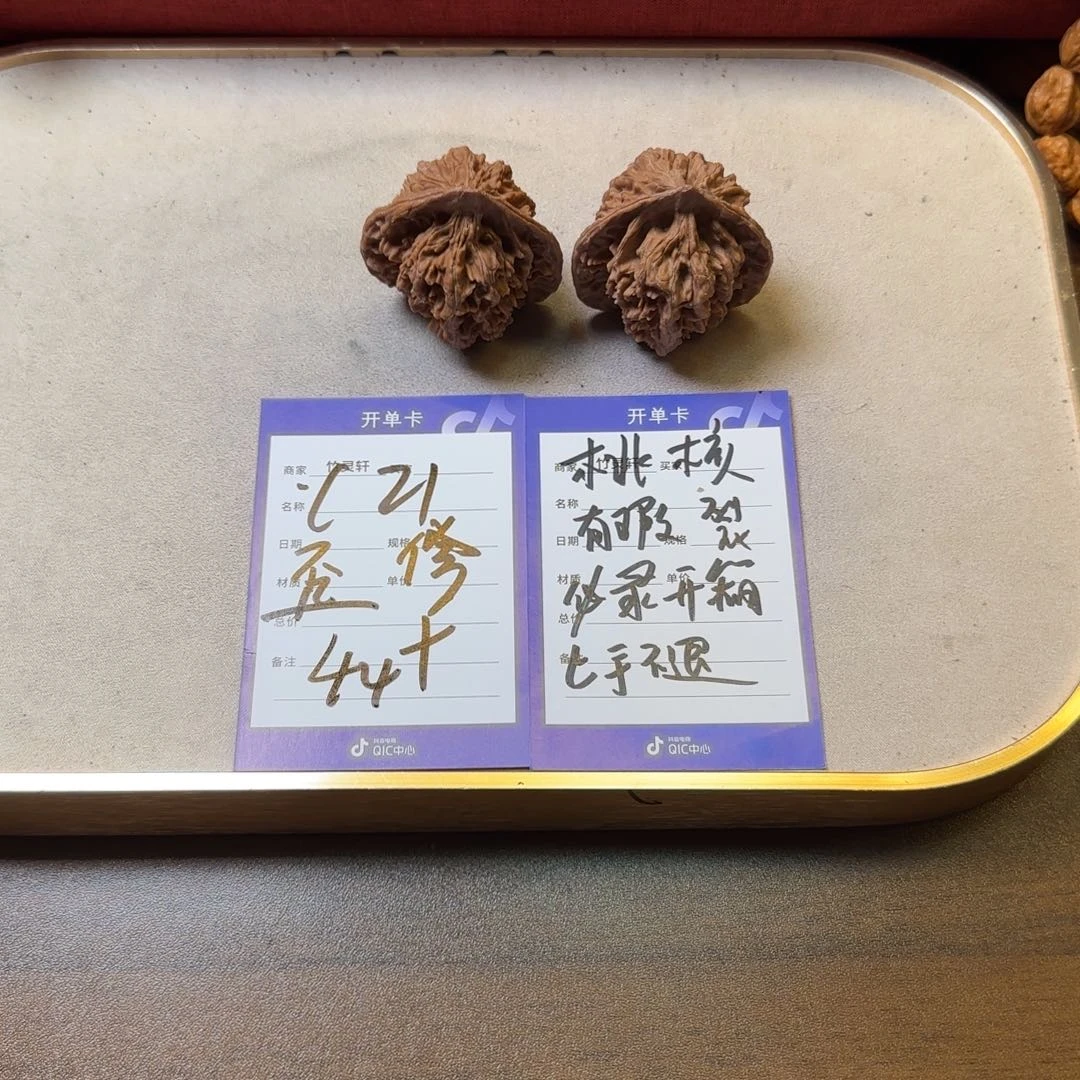 开单卡
商家 竹灵轩
名称
日期 规格
材质 单价
总价
备注
心 21
歪 修
44+
抖音电商
QIC中心
开单卡
商家 竹灵轩 买家
名称
日期 规格
材质 单价
总价
备注
桃核
有瑕 裂
必录开箱
上手不退
抖音电商
QIC中心